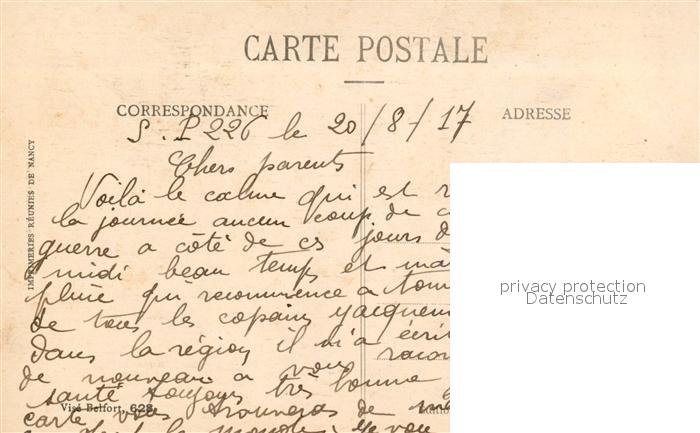 CARTE POSTALE
CORRESPONDANCE
ADRESSE
S. P 226 le 20/8/17
Chers parents
Voilà le calme qui est r
la journée aucun coup de c
guerre a côté de ces jours d
midi beau temps et ma
pluie qui recommence a tom
de tous les copains
Dans la région il m'a écri
de nouveau a vous racon
santé toujours très bonne
carte vous de
le monde je vou
IMPRIMERIES RÉUNIES DE NANCY
Visé Belfort, 628.
privacy protection
Datenschutz